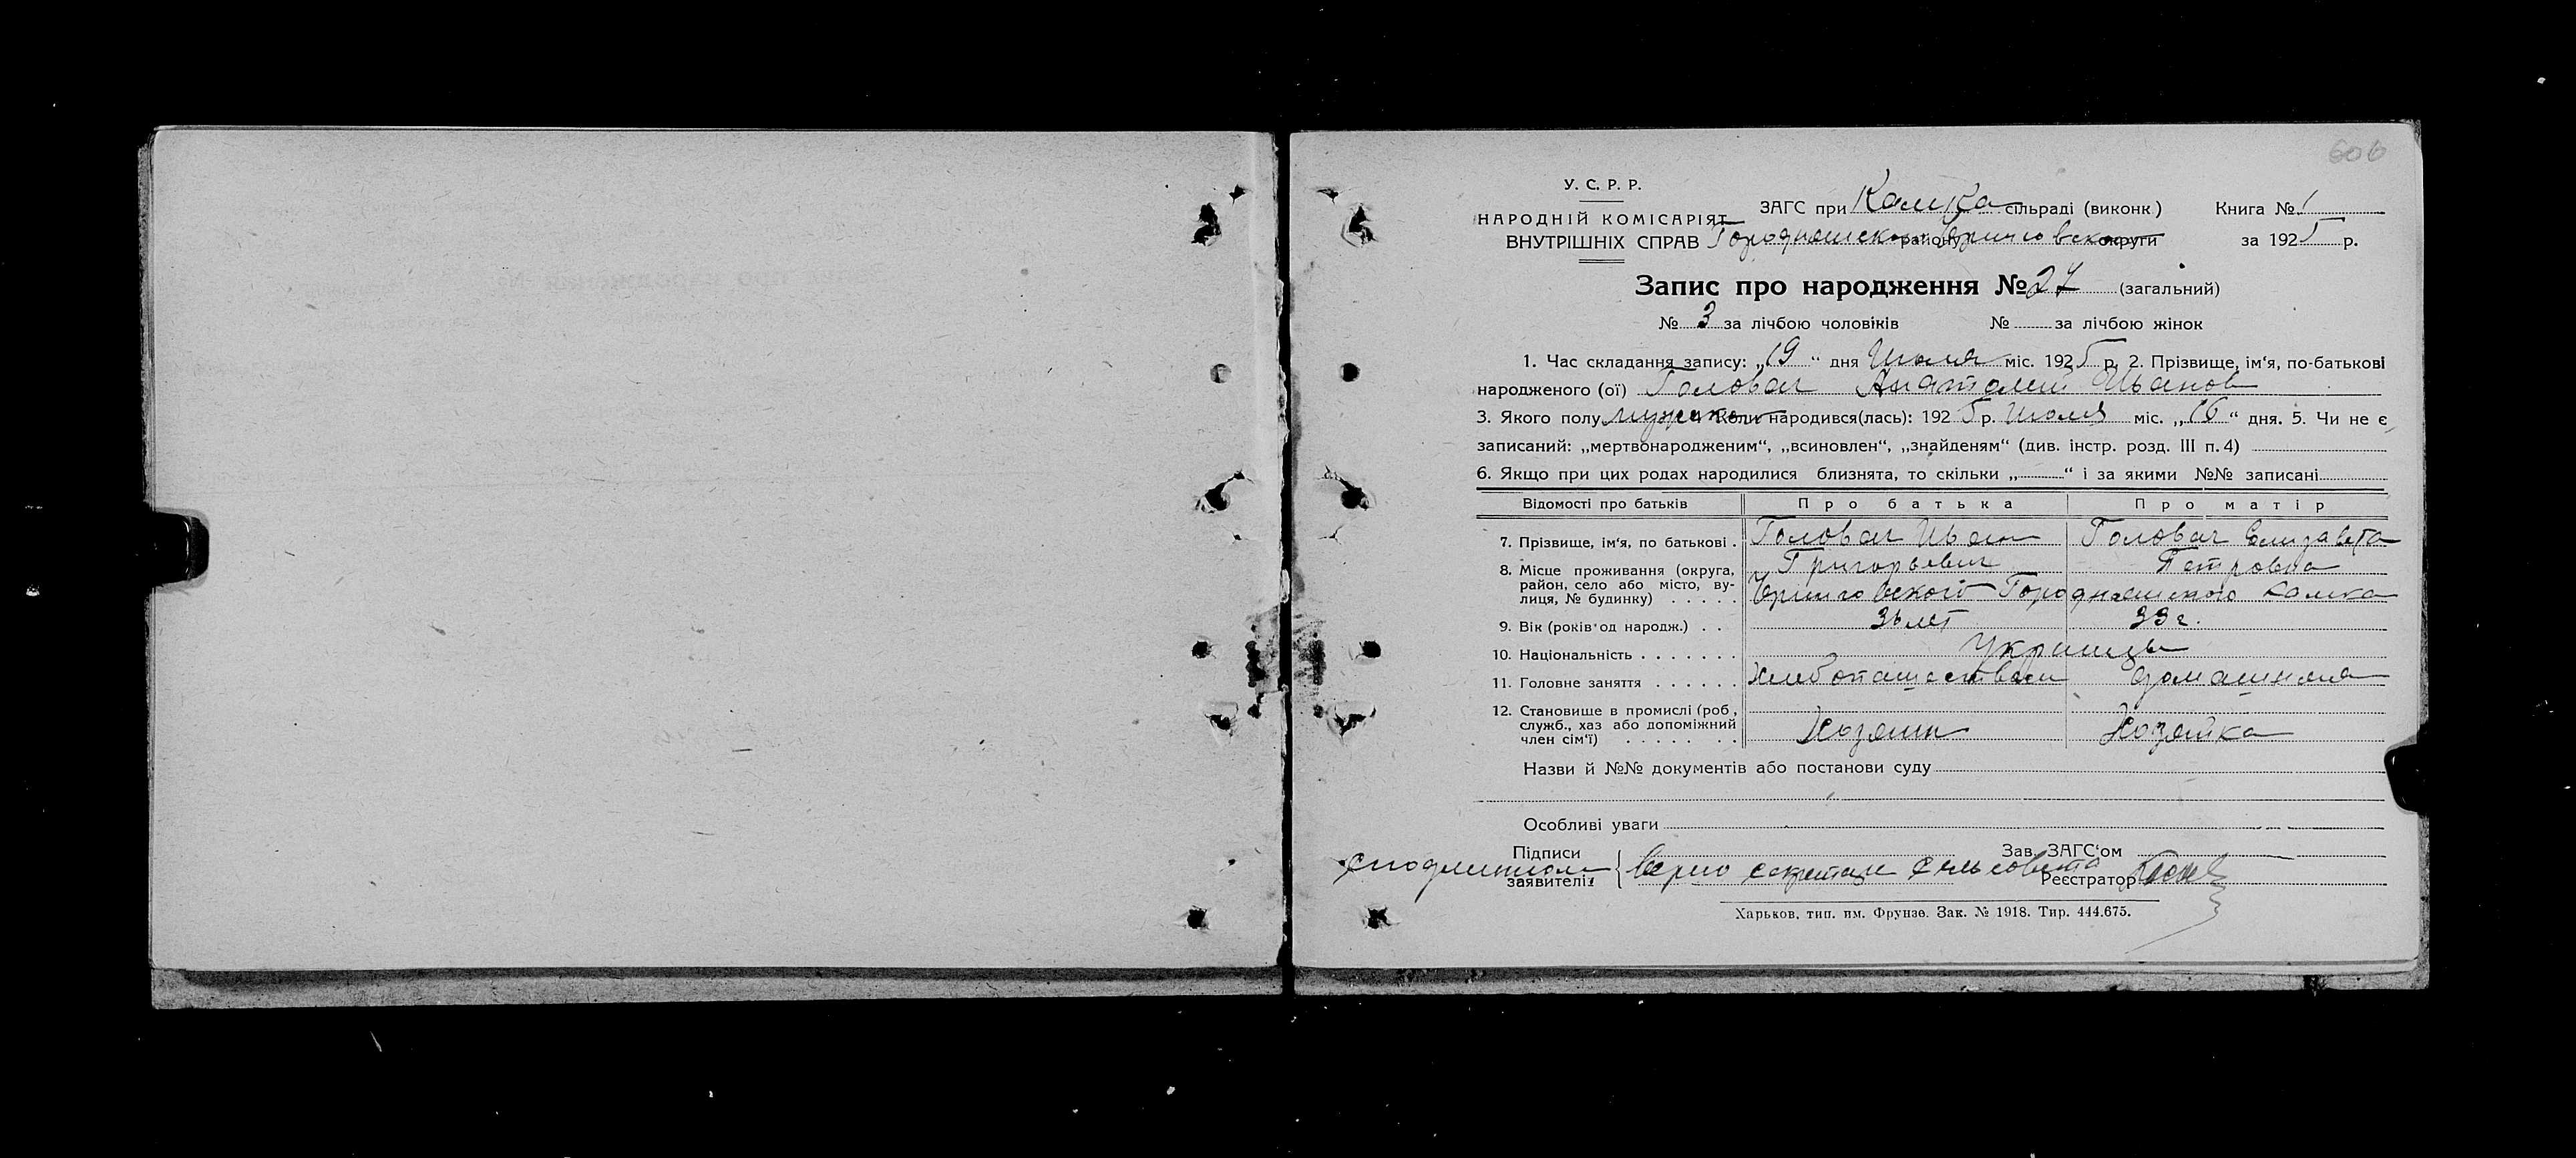 606
У. С. Р. Р.
НАРОДНІЙ КОМІСАРІЯТ
ВНУТРІШНІХ СПРАВ
ЗАГС при Камка сільраді (виконк) Книга № 1
Городнянского району Черниговской округи за 1925 р.
Запис про народження № 27 (загальний)
№ 3 за лічбою чоловіків № за лічбою жінок
1. Час складання запису: „19“ дня Июля міс. 1925 р. 2. Прізвище, ім‘я, по-батькові
народженого (ої) Головач Анатолий Иванов
3. Якого полу мужск Коли народився(лась): 1925 р. Июля міс. „16“ дня. 5. Чи не є
записаний: „мертвонародженим“, „всиновлен“, „знайденям“ (див. інстр. розд. III п. 4)
6. Якщо при цих родах народилися близнята, то скільки „ “ і за якими №№ записані
Відомості про батьків Про батька Про матір
7. Прізвище, ім‘я, по батькові . Головач Иван Григорьевич Головач Елизавета Петровна
8. Місце проживання (округа,
район, село або місто, ву-
лиця, № будинку) . . . . . Черниговского Городнянского Камка
9. Вік (років од народж.) . . лет 33 г.
10. Національність . . . . . . . Украинцы
11. Головне заняття . . . . . . Хлебопашеством домашняя
12. Становище в промислі (роб.,
служб., хаз або допоміжний
член сім‘ї) . . . . . . . . Хозяин Хозяйка
Назви й №№ документів або постанови суду
Особливі уваги
Підписи заявителів { Зав. ЗАГС‘ом
с подлинном верно секретарь сельсовета Реєстратор
Харьков, тип. им. Фрунзе. Зак. № 1918. Тир. 444.675.